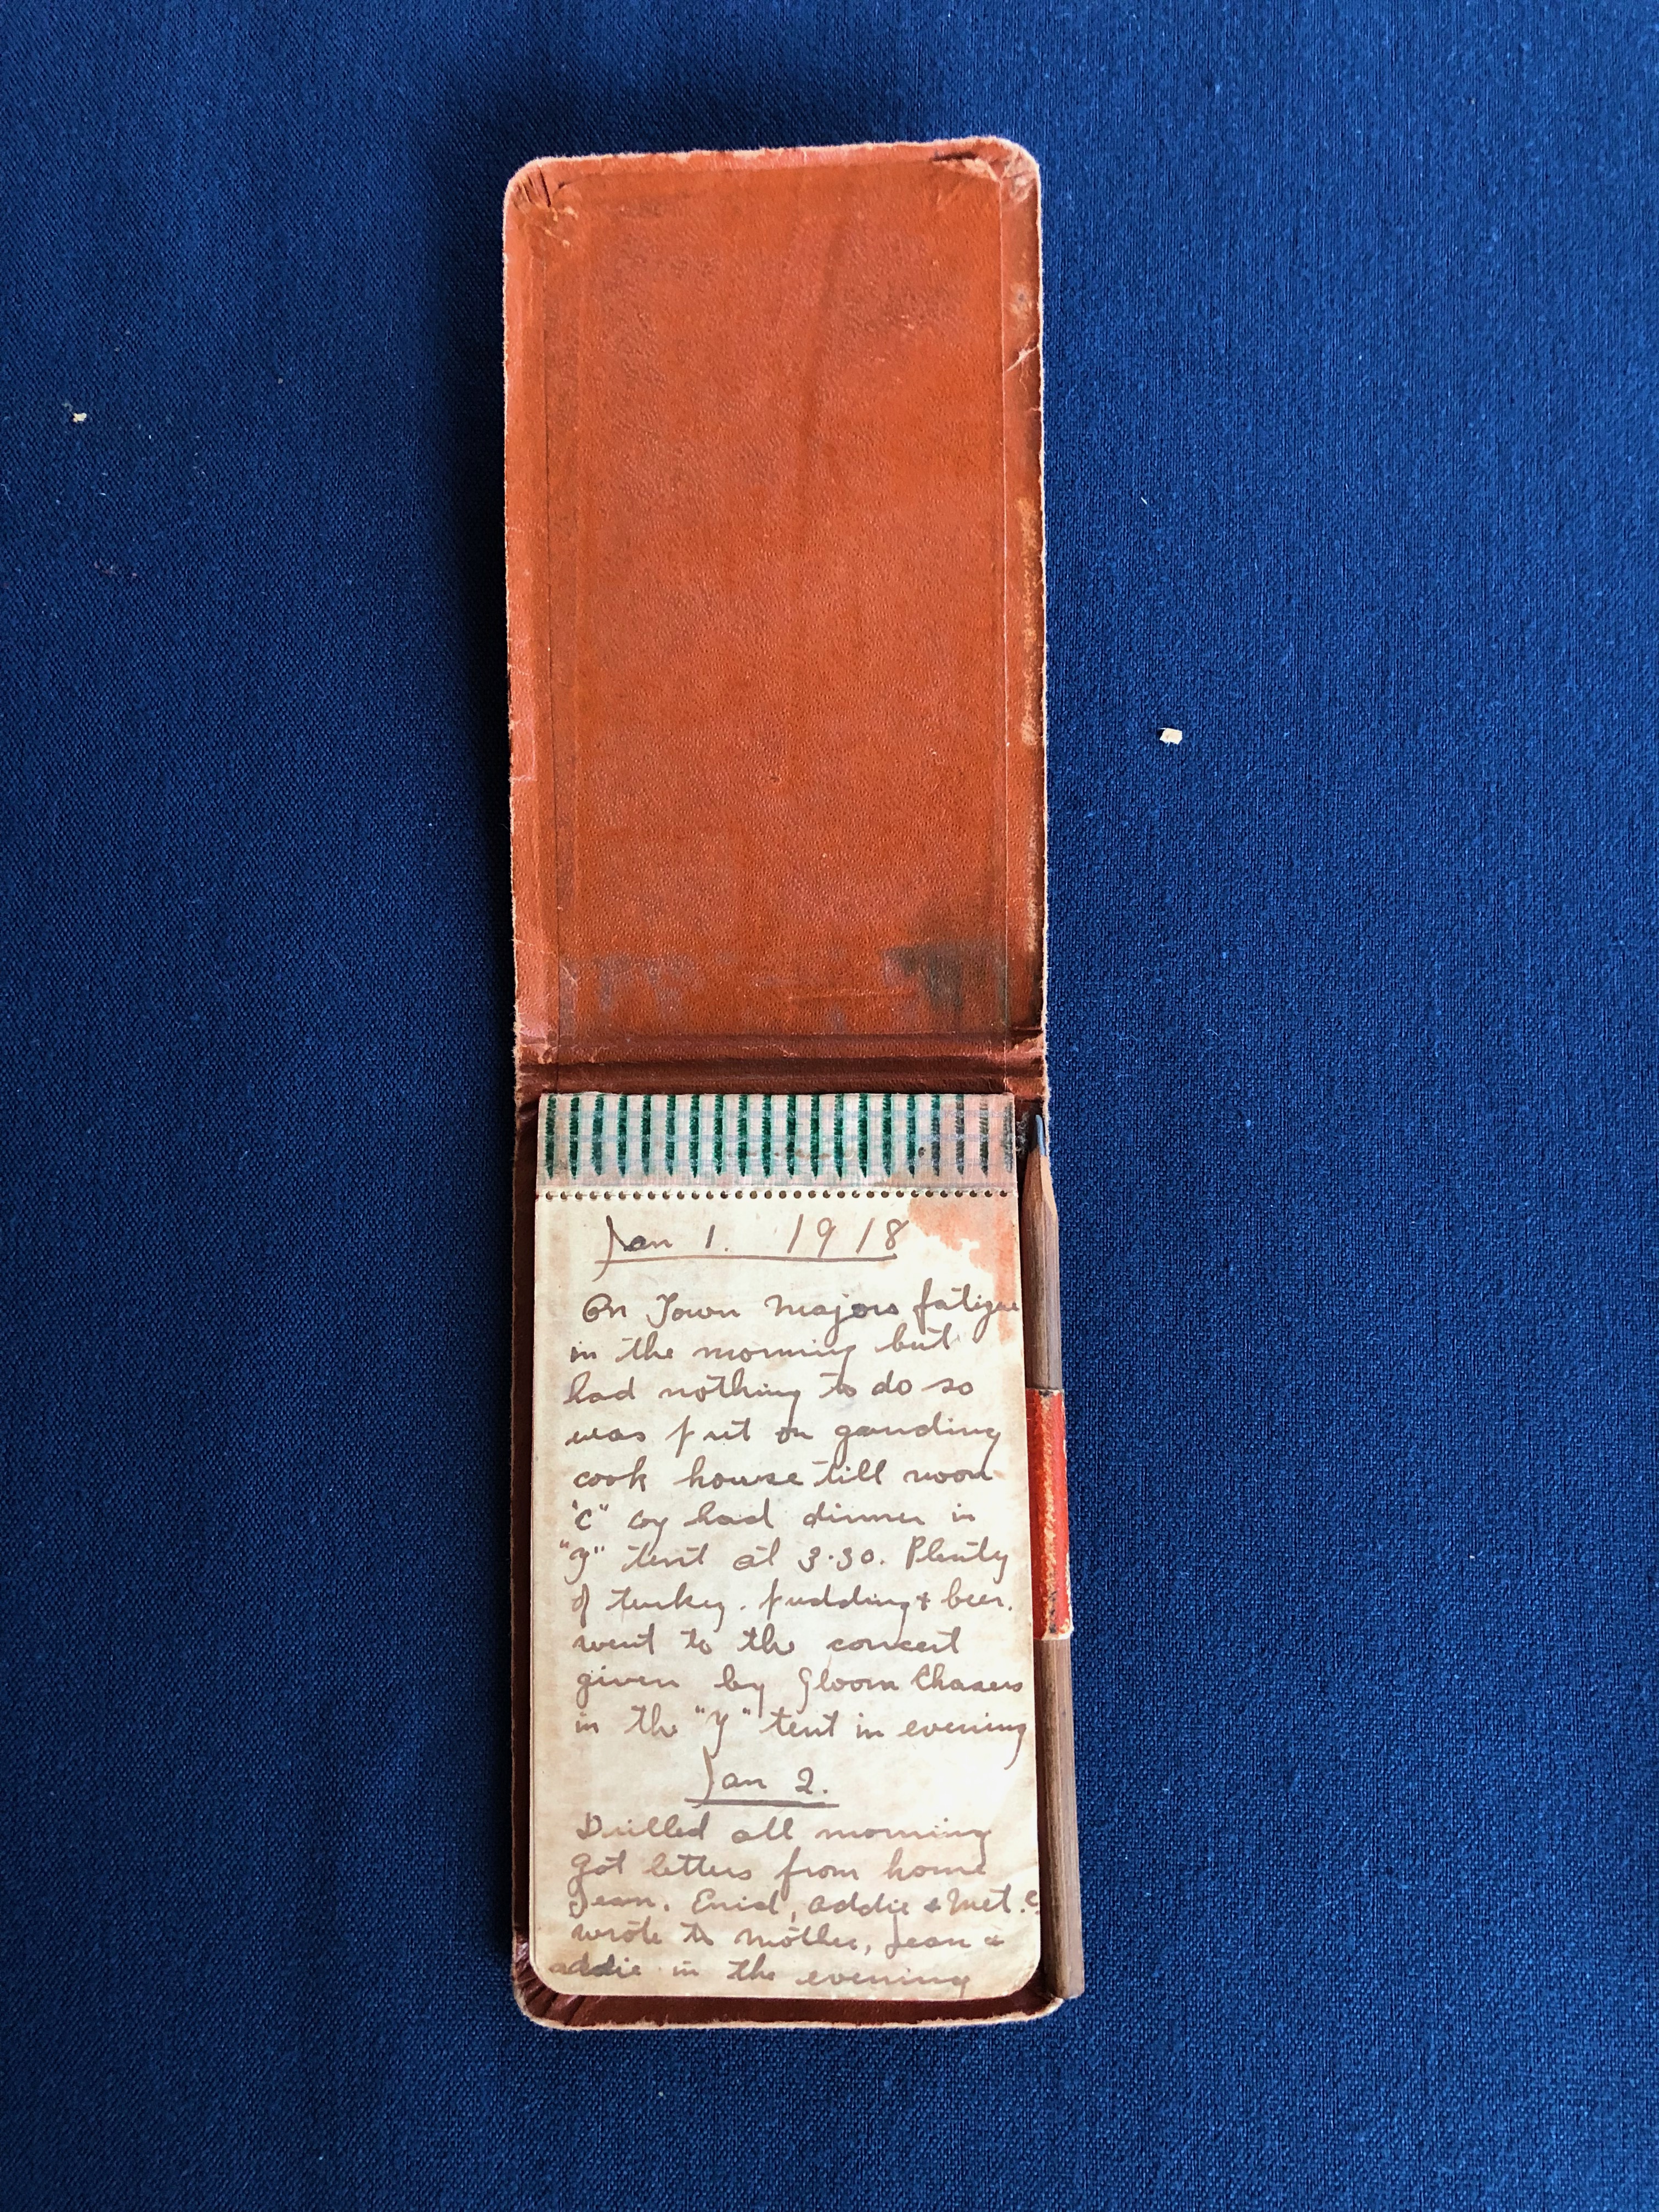 Jan 1. 1918
On Town Majors fatigue
in the morning but
had nothing to do so
was put on gauding
cook house till noon
"C" coy had dinner in
"Y" tent at 3.30. Plenty
of turkey. pudding & beer.
went to the concert
given by Gloom Chasers
in the "Y" tent in evening
Jan 2.
Drilled all morning
Got letters from home
Jean. Enid, Addie & Met. C
wrote to mother, Jean &
addie in the evening